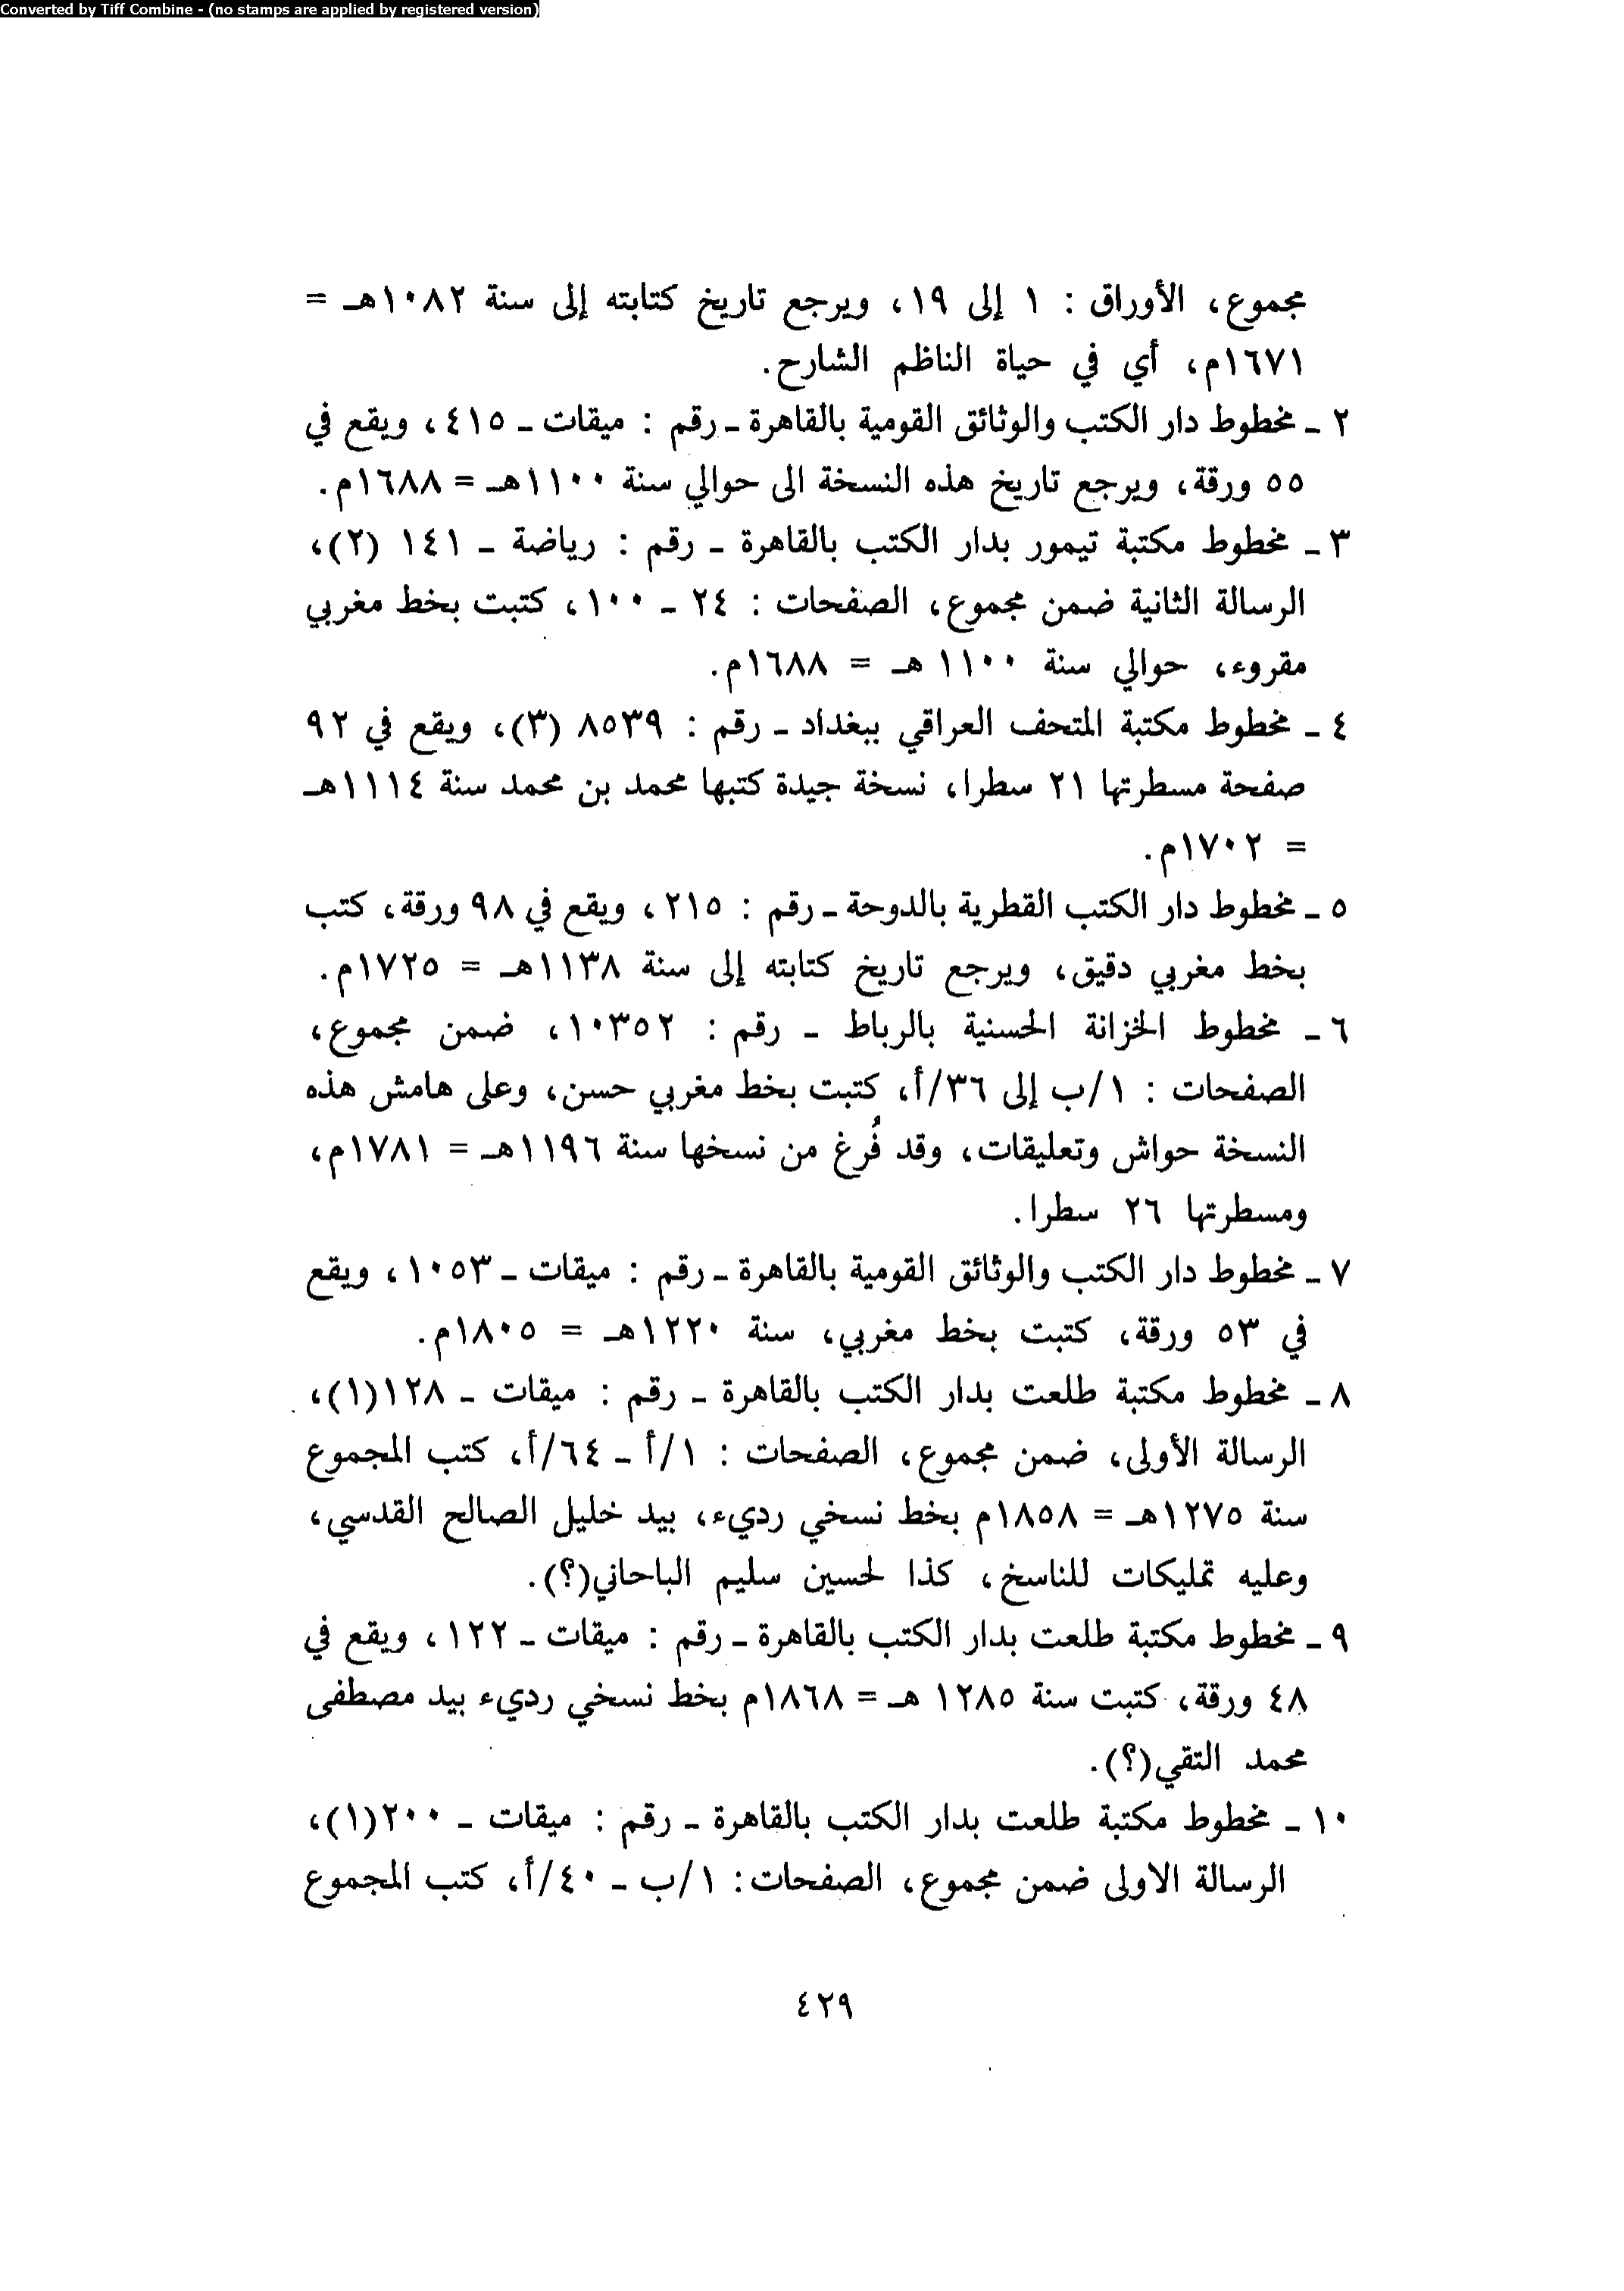 Converted by Tiff Combine - (no stamps are applied by registered version)
مجموع، الأوراق : ١ إلى ١٩، ويرجع تاريخ كتابته إلى سنة ١٠٨٢هـ =
١٦٧١م، أي في حياة الناظم الشارح.
٢ ـ مخطوط دار الكتب والوثائق القومية بالقاهرة ـ رقم : ميقات ـ ٤١٥، ويقع في
٥٥ ورقة، ويرجع تاريخ هذه النسخة الى حوالي سنة ١١٠٠هـ = ١٦٨٨م.
٣ ـ مخطوط مكتبة تيمور بدار الكتب بالقاهرة ـ رقم : رياضة ـ ١٤١ (٢)،
الرسالة الثانية ضمن مجموع، الصفحات : ٢٤ ـ ١٠٠، كتبت بخط مغربي
مقروء، حوالي سنة ١١٠٠ هـ = ١٦٨٨م.
٤ ـ مخطوط مكتبة المتحف العراقي ببغداد ـ رقم : ٨٥٣٩ (٣)، ويقع في ٩٢
صفحة مسطرتها ٢١ سطرا، نسخة جيدة كتبها محمد بن محمد سنة ١١١٤هـ
= ١٧٠٢م.
٥ ـ مخطوط دار الكتب القطرية بالدوحة ـ رقم : ٢١٥، ويقع في ٩٨ ورقة، كتب
بخط مغربي دقيق، ويرجع تاريخ كتابته إلى سنة ١١٣٨هـ = ١٧٢٥م.
٦ ـ مخطوط الخزانة الحسنية بالرباط ـ رقم : ١٠٣٥٢، ضمن مجموع،
الصفحات : ١/ب إلى ٣٦/أ، كتبت بخط مغربي حسن، وعلى هامش هذه
النسخة حواش وتعليقات، وقد فُرغ من نسخها سنة ١١٩٦هـ = ١٧٨١م،
ومسطرتها ٢٦ سطرا.
٧ ـ مخطوط دار الكتب والوثائق القومية بالقاهرة ـ رقم : ميقات ـ ١٠٥٣، ويقع
في ٥٣ ورقة، كتبت بخط مغربي، سنة ١٢٢٠هـ = ١٨٠٥م.
٨ ـ مخطوط مكتبة طلعت بدار الكتب بالقاهرة ـ رقم : ميقات ـ ١٢٨(١)،
الرسالة الأولى، ضمن مجموع، الصفحات : ١/أ ـ ٦٤/أ، كتب المجموع
سنة ١٢٧٥هـ = ١٨٥٨م بخط نسخي رديء، بيد خليل الصالح القدسي،
وعليه تمليكات للناسخ، كذا لحسين سليم الباحاني(؟).
٩ ـ مخطوط مكتبة طلعت بدار الكتب بالقاهرة ـ رقم : ميقات ـ ١٢٢، ويقع في
٤٨ ورقة، كتبت سنة ١٢٨٥ هـ = ١٨٦٨م بخط نسخي رديء بيد مصطفى
محمد التقي(؟).
١٠ ـ مخطوط مكتبة طلعت بدار الكتب بالقاهرة ـ رقم : ميقات ـ ٢٠٠(١)،
الرسالة الاولى ضمن مجموع، الصفحات: ١/ب ـ ٤٠/أ، كتب المجموع
٤٢٩